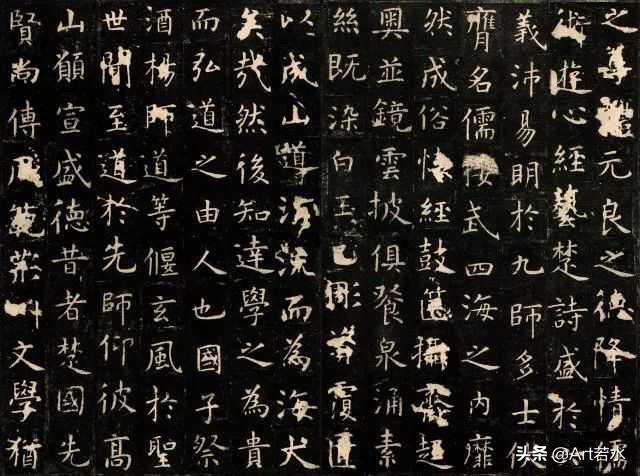 之尊禮元良之德降情儒
術遊心經藝楚詩盛於
義沛易明於九師多士伏
膺名儒接武四海之內靡
然成俗懷經鼓篋攝齊趨
奧並鏡雲披俱餐泉涌素
絲既染白玉已彫資覆匱
以成山導涓流而為海大
矣哉然後知達學之為貴
而弘道之由人也國子祭
酒楊師道等偃玄風於聖
世聞至道於先師仰彼高
山願宣盛德昔者楚國先
賢尚傳風範荊州文學猶
头条 @Art若水